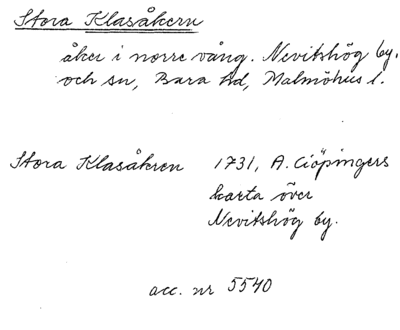 Stora Klasåkern
åker i norre vång. Nevitshög by.
och sn, Bara hd, Malmöhus l.
Stora Klasåkren 1731, A. Ciöpingers
karta över
Nevitshög by.
acc. nr 5540